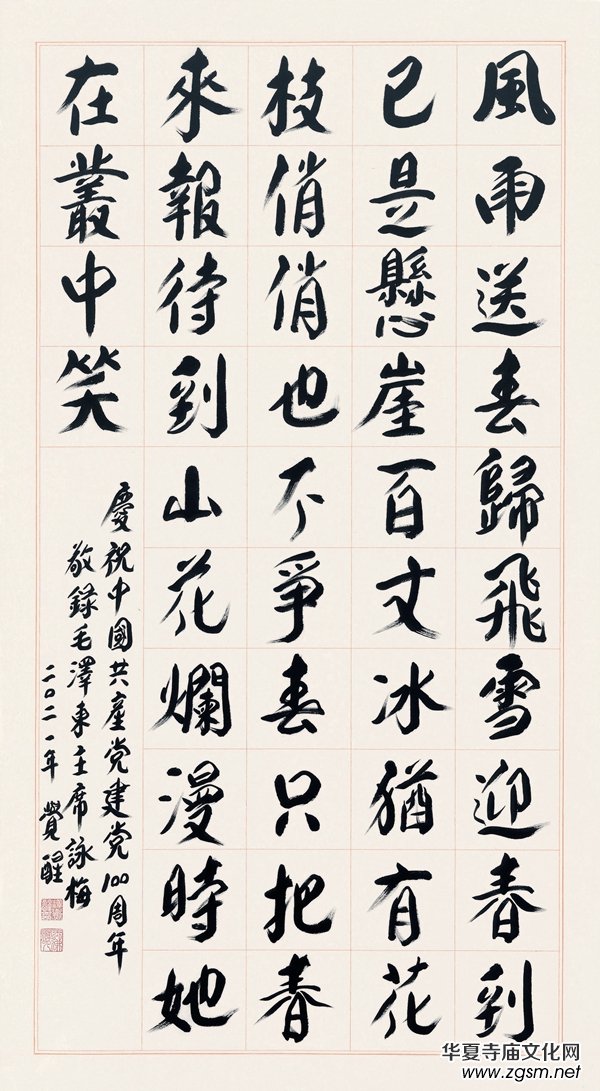 風雨送春歸飛雪迎春到
已是懸崖百丈冰猶有花
枝俏俏也不爭春只把春
來報待到山花爛漫時她
在叢中笑
慶祝中國共產党建党100周年
敬錄毛澤東主席詠梅
二〇二一年 覺醒
华夏寺庙文化网
www.zgsm.net